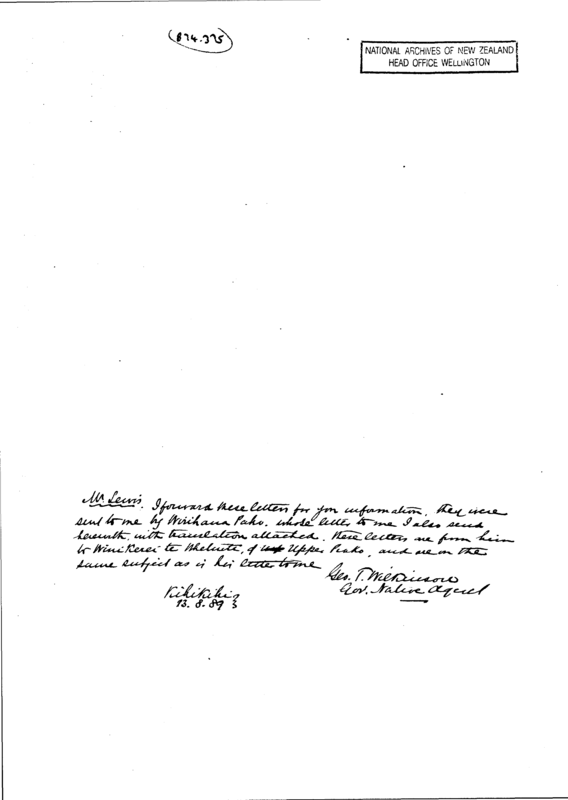 874.375
NATIONAL ARCHIVES OF NEW ZEALAND
HEAD OFFICE WELLINGTON
Mr Lewis. I forward these letters for your information. They were
sent to me by Wirihana Paho. whose letter to me I also send
herewith, with translation attached. These letters are from him
to Wini Kerei te Whetuiti, of Upper Piako, and are on the
same subject as is his letter to me
Geo. T. Wilkinson
Gov. Native Agent
Kihikihi
13. 8. 89